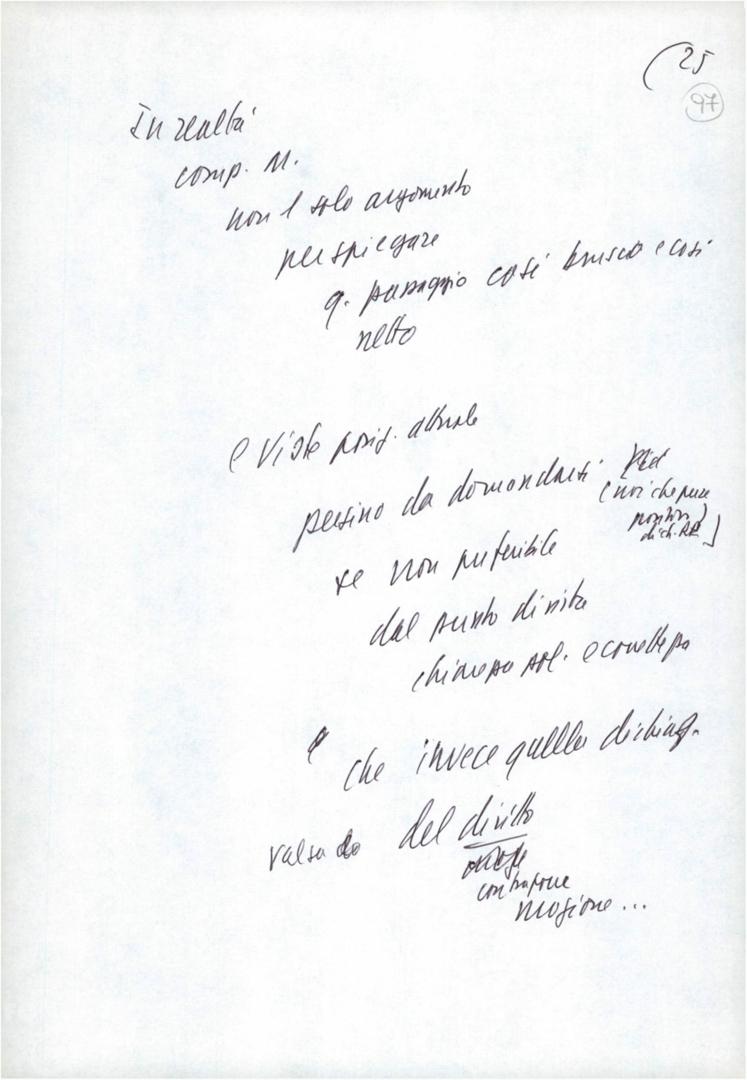 (25
97
In realtà
comp. M.
non l solo argomento
per spiegare
q. passaggio così brusco e così
netto
e viste posiz. attuale
persino da domandarsi
(noi che pure
positivi)
dich. RP
se non preferibile
dal punto di vista
chiarezza pol. e correttezza
che invece quella dichiaraz.
valsa do del diritto
contrapone
mozione ...